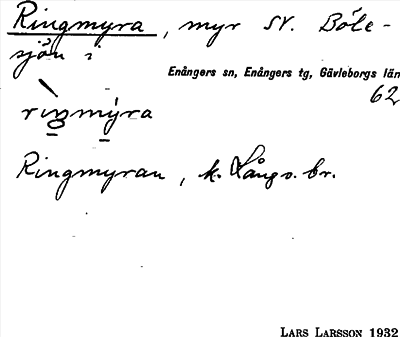 Ringmyra, myr SV. Böle-
sjön i
Enångers sn, Enångers tg, Gävleborgs län
62
ringmýra
Ringmyran, k. Långs. br.
LARS LARSSON 1932